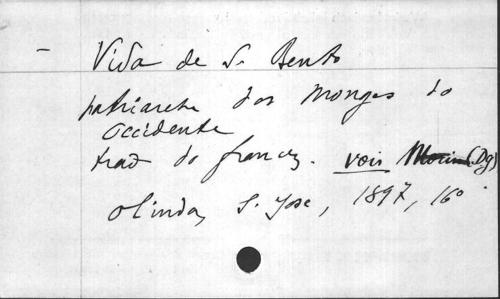 — Vida de S. Bento
patriarcha dos monges do
occidente
trad do francez. voir (Dg)
Olinda, S. Jose, 1897, 16°